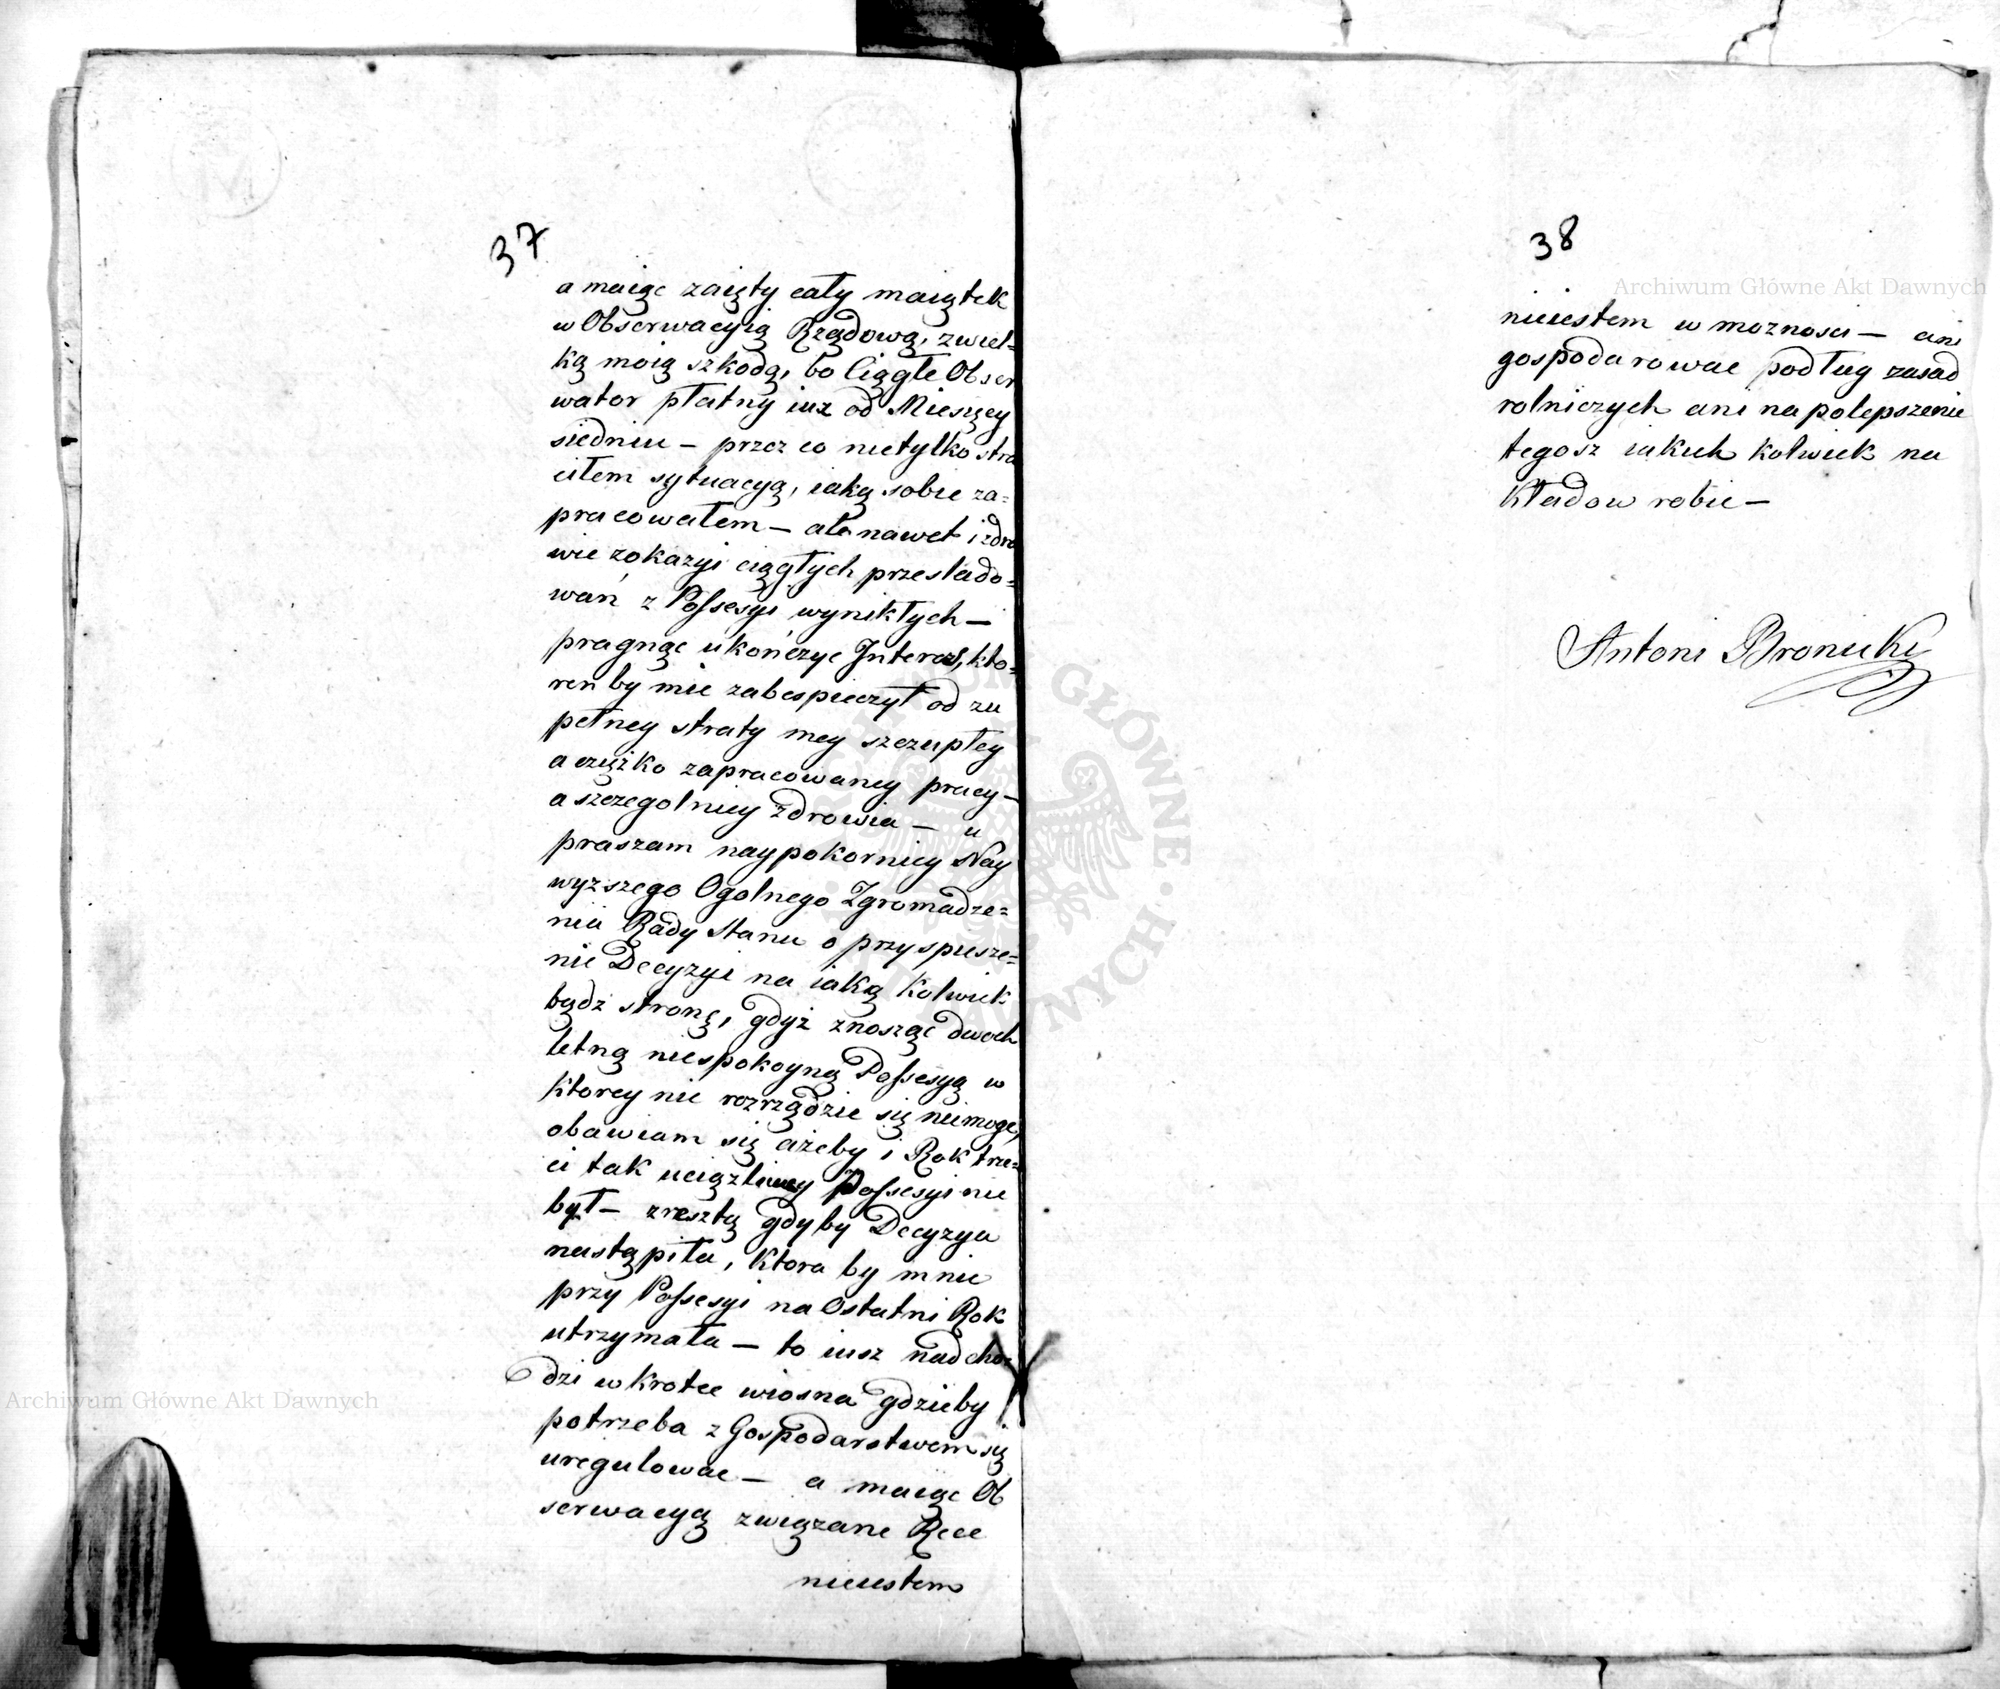 37
a maiąc zaięty cały maiątek
w Obserwacyią Rządową, zwiel=
ką moią szkodą, bo Ciągle Obser
wator płatny iuz od Miesięcy
siedmiu — przez co nietylko stra
ciłem sytuacyą, iaką sobie za=
pracowałem — ale nawet i zdro
wie zokazyi ciągłych przeslado=
wań z Possesyi wynikłych —
pragnąc ukończyc Interes, kto=
ren by mie zabespieczył od zu
pełney straty mey szczupłey
a cięzko zapracowaney pracy —
a szczegolniey Zdrowia — u
praszam naypokorniey Nay
wyzszego Ogolnego Zgromadze=
nia Rady Stanu o przyspiesze=
nie Decyzyi na iaką Kolwiek
bądz stronę, gdyż znosząc dwoch
letną niespokoyną Possesyą w
ktorey nic rozrządzic się niemogę,
obawiam się ażeby i Rok trze=
ci tak uciązliwey Possesyi nie
był — zresztą gdyby Decyzya
nastąpiła, Ktora by mnie
przy Possesyi na Ostatni Rok
utrzymała — to iusz nadcho=
dzi wkrotce wiosna gdzieby
potrzeba z Gospodarstwem się
uregulowac — a maiąc Ob
serwacyą związane Ręce
nieiestem
38
nieiestem w moznosci — ani
gospodarowac podług zasad
rolniczych ani na polepszenie
tegosz iakich kolwiek na
Kładow robic —
Antoni Bronicki
Archiwum Główne Akt Dawnych
Archiwum Główne Akt Dawnych